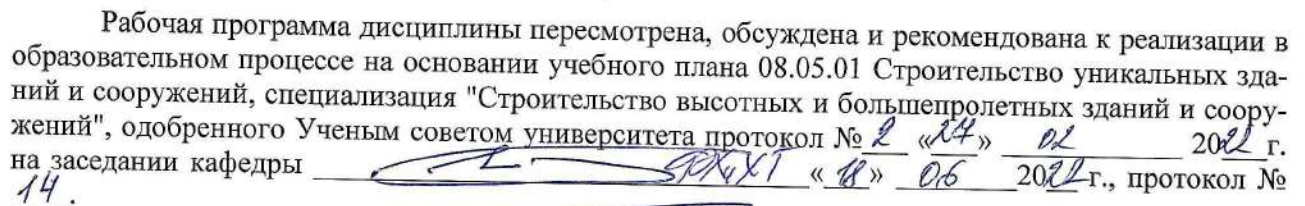 Рабочая программа дисциплины пересмотрена, обсуждена и рекомендована к реализации в
образовательном процессе на основании учебного плана 08.05.01 Строительство уникальных зда-
ний и сооружений, специализация "Строительство высотных и большепролетных зданий и соору-
жений", одобренного Ученым советом университета протокол № 2 «27» 02 2022 г.
на заседании кафедры ФХиХТ «18» 06 2022 г., протокол №
14.